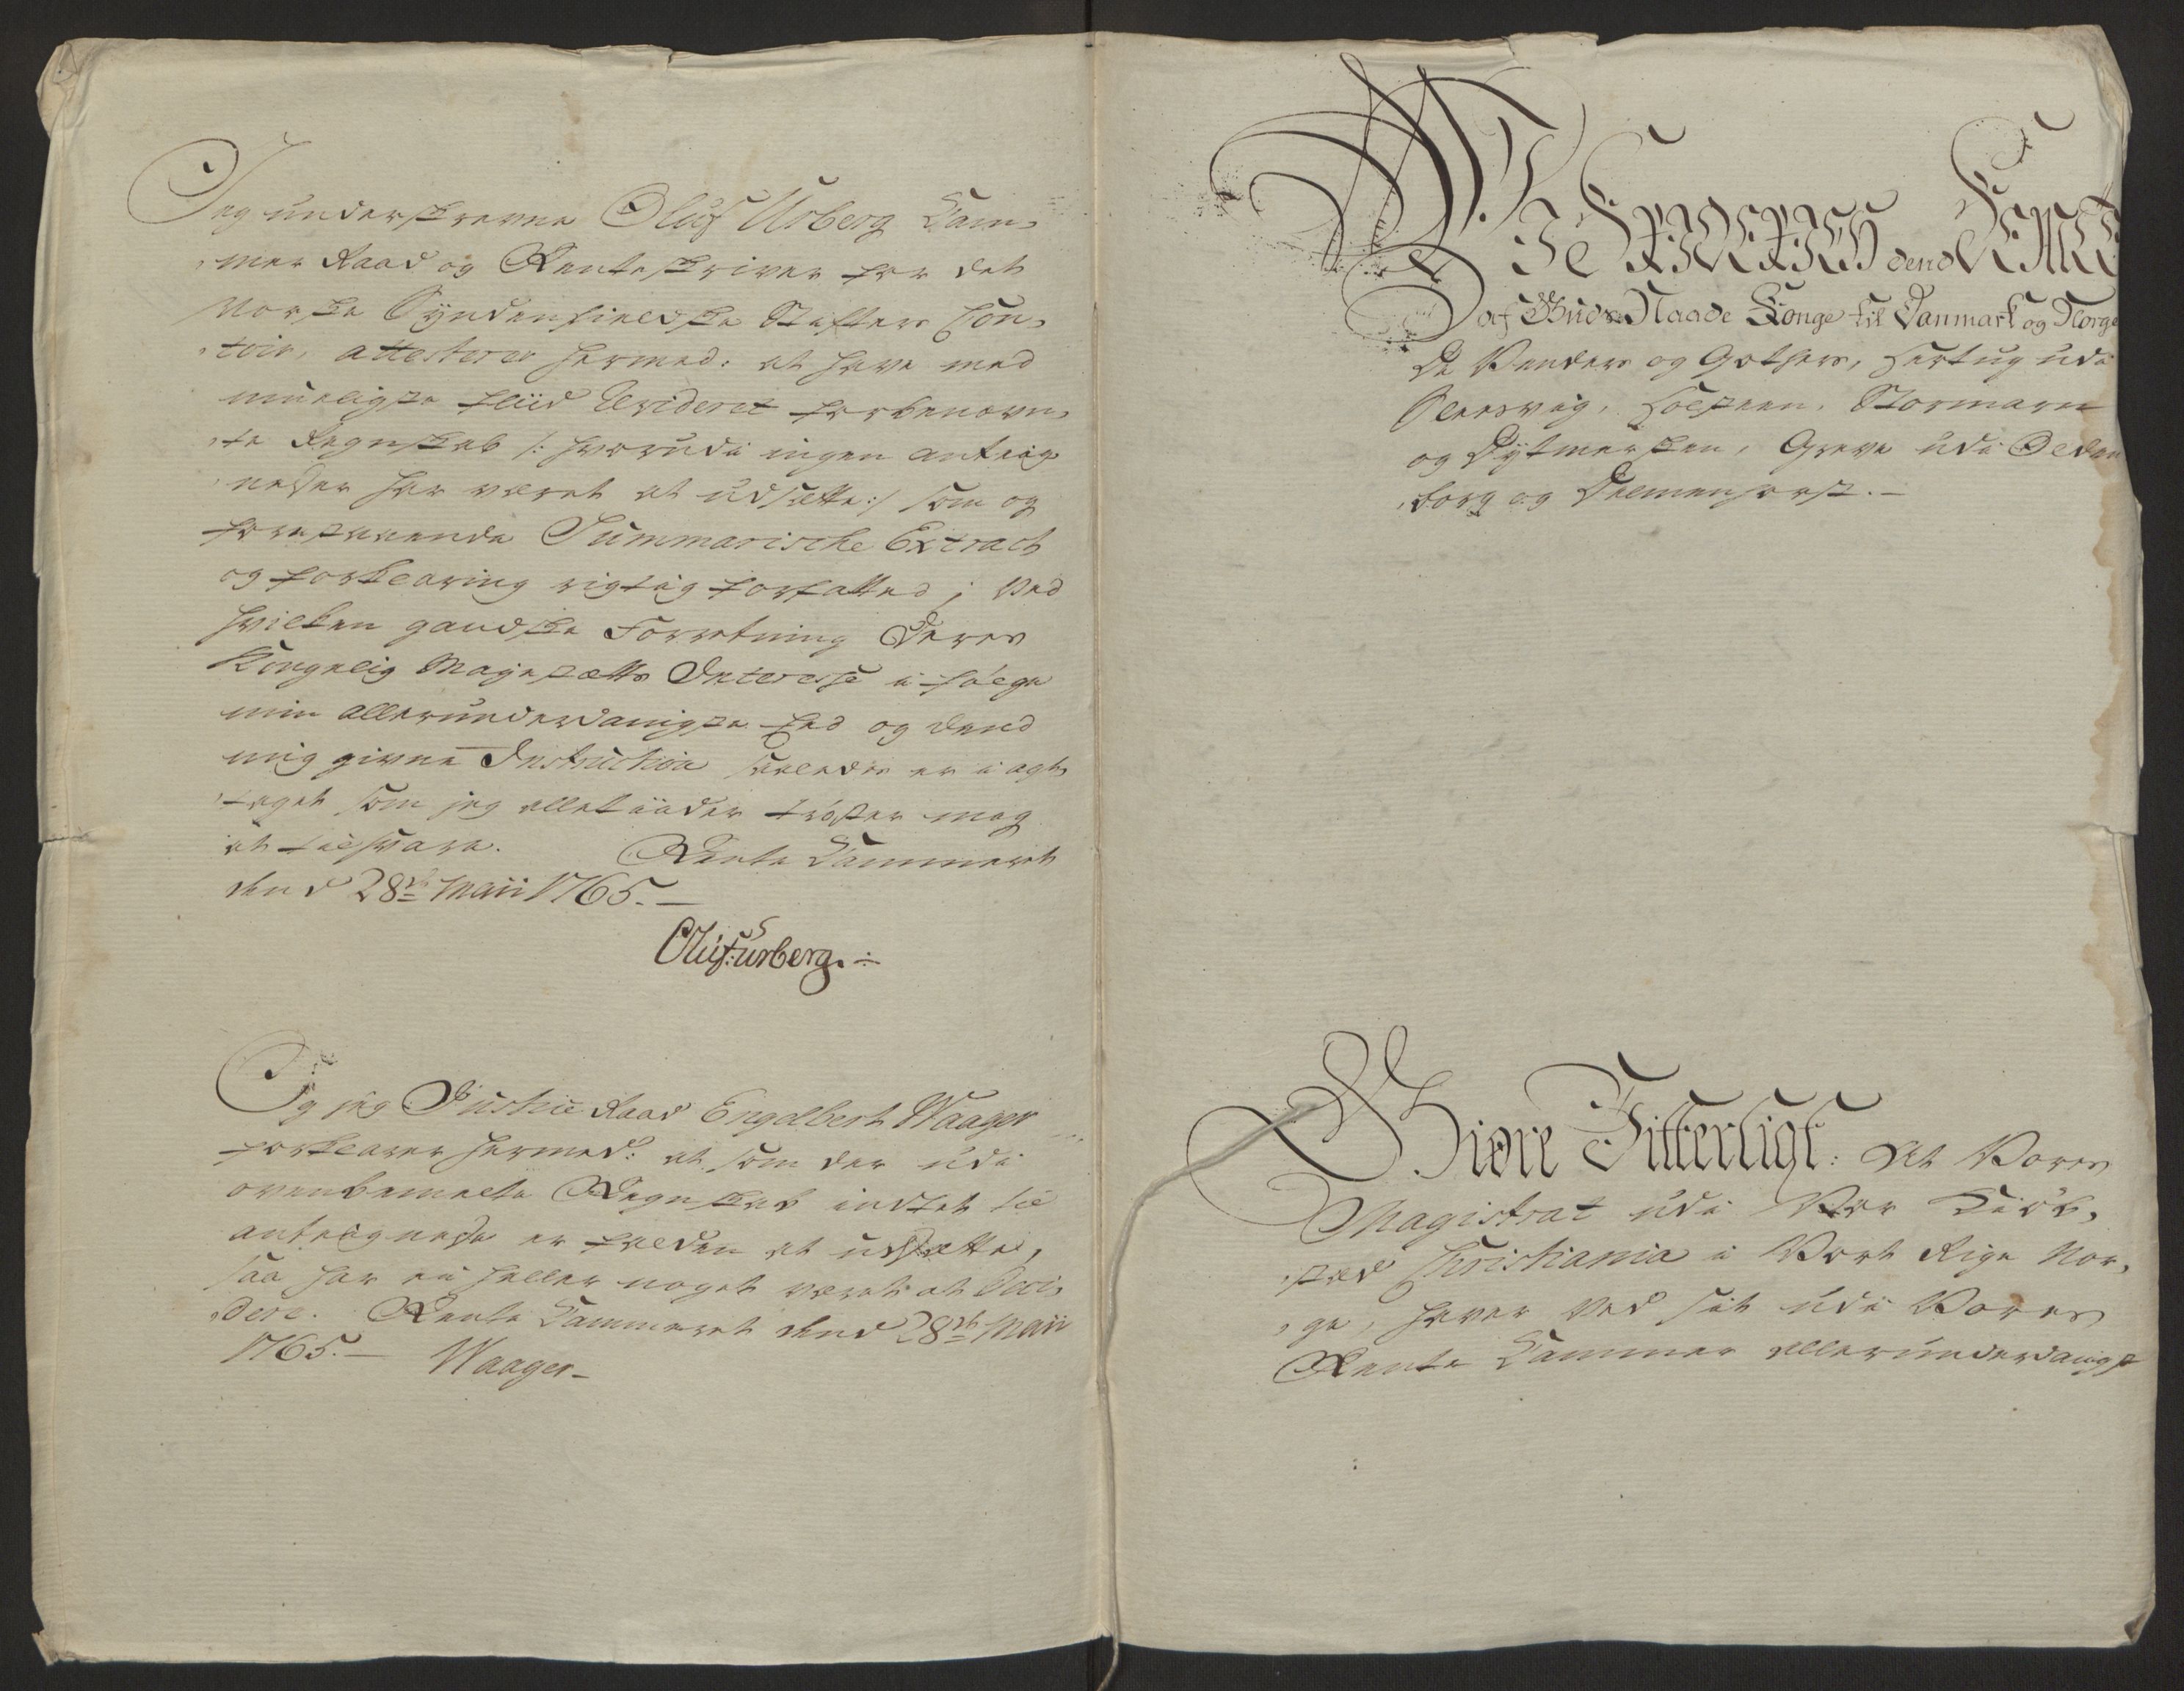 Jeg underskrevne Oluf Urberg Cam-
mer Raad og Renteskriver for det
Norske Syndenfieldske Stifters Con-
toir, attesterer hermed: at have med
mueligste fliid Revideret forbenevn-
te Regnskab /: hvorudi ingen anteig-
nelser har været at udsætte :/ som og
forestaaende Summariske Extract
og forklaring rigtig forfatted; Ved
hvilken gandske Forretning Deres
Kongelig Mayestætts Interesse i følge
min allerunderdanigste Eed og dend
mig givne Instruction saaledes er i agt-
taget som jeg alletiider trøster mig
at tilsvare. Rente Cammeret
dend 28de Maii 1765.
Oluf Urberg.
Og jeg Justice Raad Engelbert Waager
forklarer hermed: at som der udi
ovenbemelte Regnskab indtet til
anteignelse er falden at udsætte,
saa har ej heller noget været at deci-
dere. Rente Cammeret dend 28de Maii
1765. Waager
Wi Friderich dend Femte
af Guds Naade Konge til Danmark og Norge
De Venders og Gothers, Hertug udi
Slesvig, Holsteen, Stormarn
og Dytmersken, Greve udi Olden-
borg og Delmenhorst.
Giøre Vitterligt: At Vores
Magistrat udi Vor Kiøb-
stæd Christiania i Vort Rige Nor-
ge, haver ved sit udi Vores
Rente Cammer allerunderdanigst